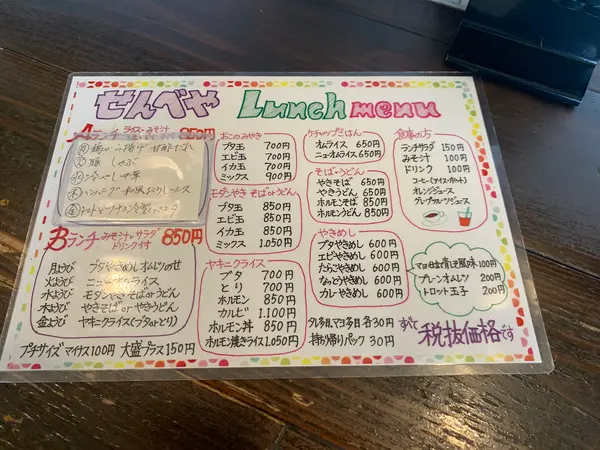 せんべや Lunch menu
Aランチ ライス・みそ汁 850円
月 鶏の
火 豚しゃぶ
水 冷やし中華
木 ハンバーグ和風おろしソース
金
Bランチ みそ汁・サラダ ドリンク付 850円
月ようび ブタやきめしオムソのせ
火ようび ニューオムライス
水ようび モダンやきそばorうどん
木ようび やきそばorやきうどん
金ようび ヤキニクライス(ブタorとり)
プチサイズマイナス100円 大盛プラス150円
おこのみやき
ブタ玉 700円
エビ玉 700円
イカ玉 700円
ミックス 900円
モダンやき そばorうどん
ブタ玉 850円
エビ玉 850円
イカ玉 850円
ミックス 1.050円
ヤキニクライス
ブタ 700円
とり 700円
ホルモン 850円
カルビ 1.100円
ホルモン丼 850円
ホルモン焼きライス 1.050円
ケチャップごはん
オムライス 650円
ニューオムライス 650円
そば・うどん
やきそば 650円
やきうどん 650円
ホルモンそば 850円
ホルモンうどん 850円
やきめし
ブタやきめし 600円
エビやきめし 600円
たらこやきめし 600円
なっとうやきめし 600円
カレーやきめし 600円
タレ多目、マヨ多目 各30円
持ち帰りパック 30円
食事の方
ランチサラダ 150円
みそ汁 100円
ドリンク 100円
コーヒー(アイス・ホット)
オレンジジュース
グレープフルーツジュース
マヨ仕立青じそ風味 100円
プレーンオムレツ 200円
トロット玉子 200円
すべて税抜価格です